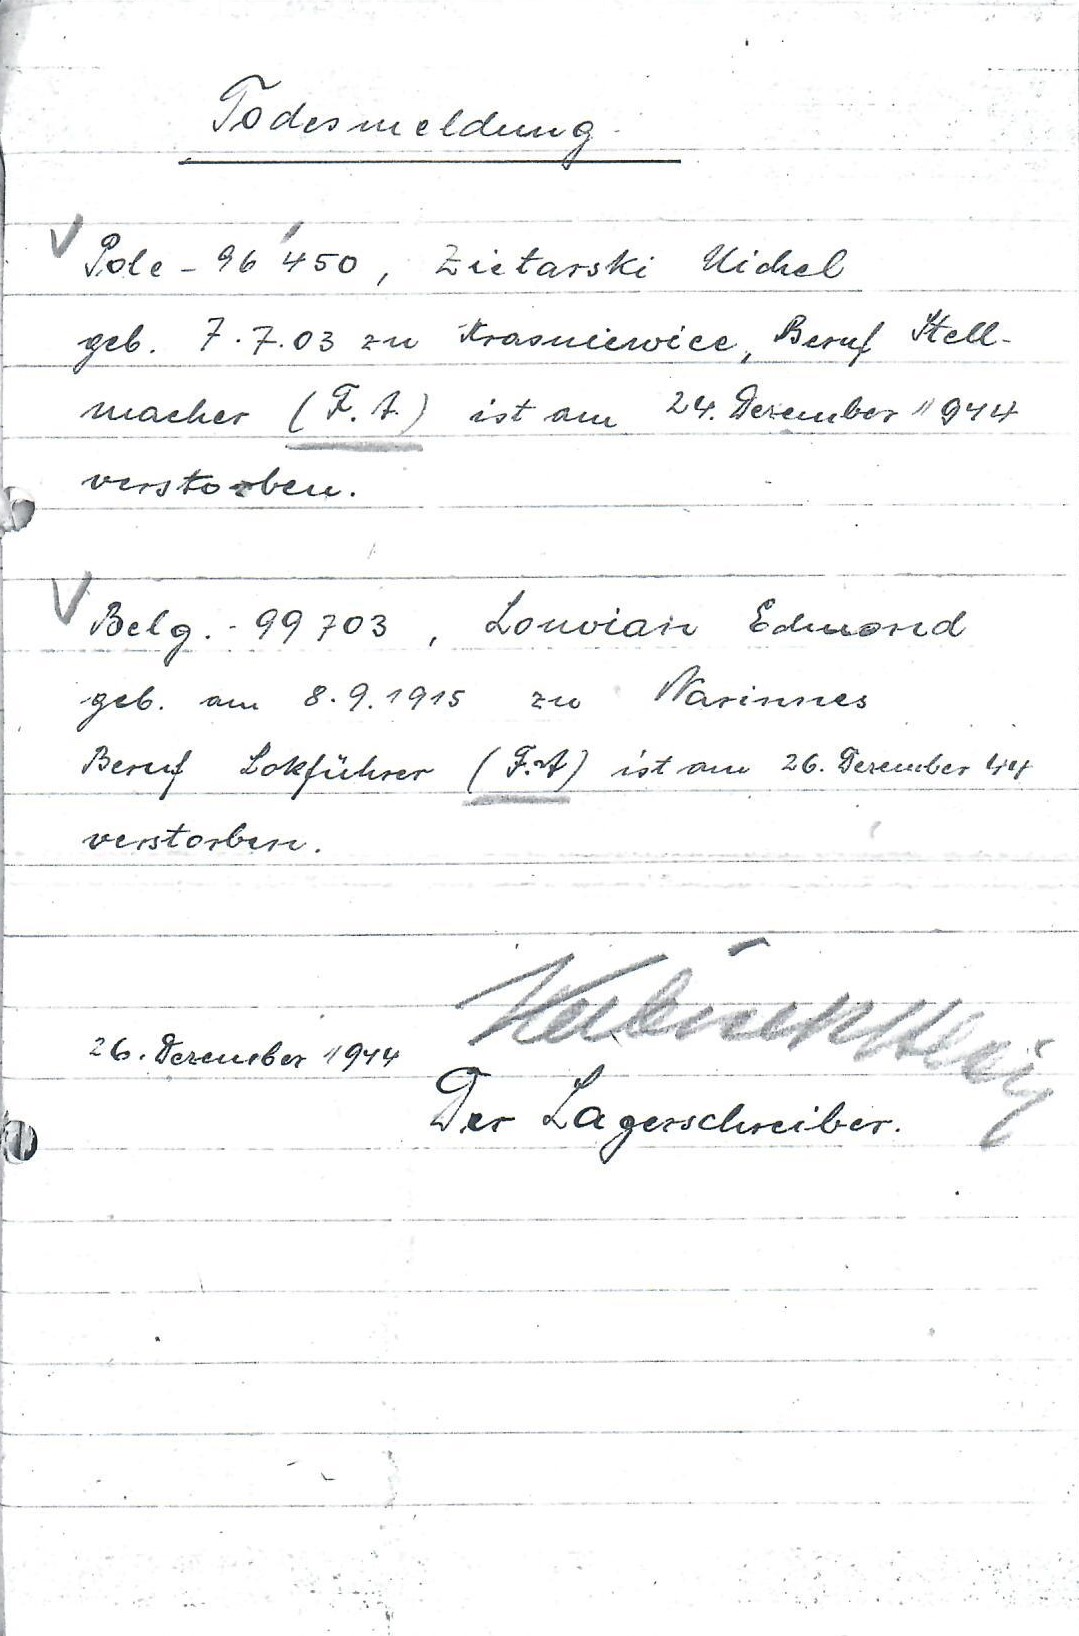 Todesmeldung
Pole - 96'450, Zietarski Michel
geb. 7.7.03 zu Krasniewice, Beruf Stell-
macher (F.A) ist am 24. Dezember 1944
verstorben.
Belg. - 99703, Louvian Edmond
geb. am 8.9.1915 zu Warinnes
Beruf Lokführer (F.A) ist am 26. Dezember 44
verstorben.
26. Dezember 1944
Der Lagerschreiber.